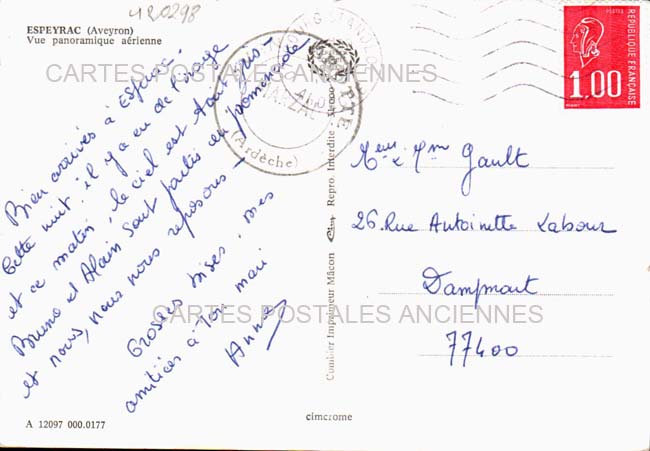 420298
ESPEYRAC (Aveyron)
Vue panoramique aérienne
CARTES POSTALES ANCIENNES
Bien arrivés à Espeyrac.
Cette nuit, il y a eu de l'orage
et ce matin, le ciel est tout gris -
Bruno et Alain sont partis en promenade
et nous, nous nous reposons -
Grosses bises, mes
amitiés à ton mari
Anna
A 12097 000.0177
(Ardèche)
Combier Imprimeur Mâcon Cim Repro. Interdite
cimcrome
POSTES
1.00
REPUBLIQUE FRANÇAISE
Mr & Mme Gault
26 Rue Antoinette Labour
Dampmart
77400
CARTES POSTALES ANCIENNES